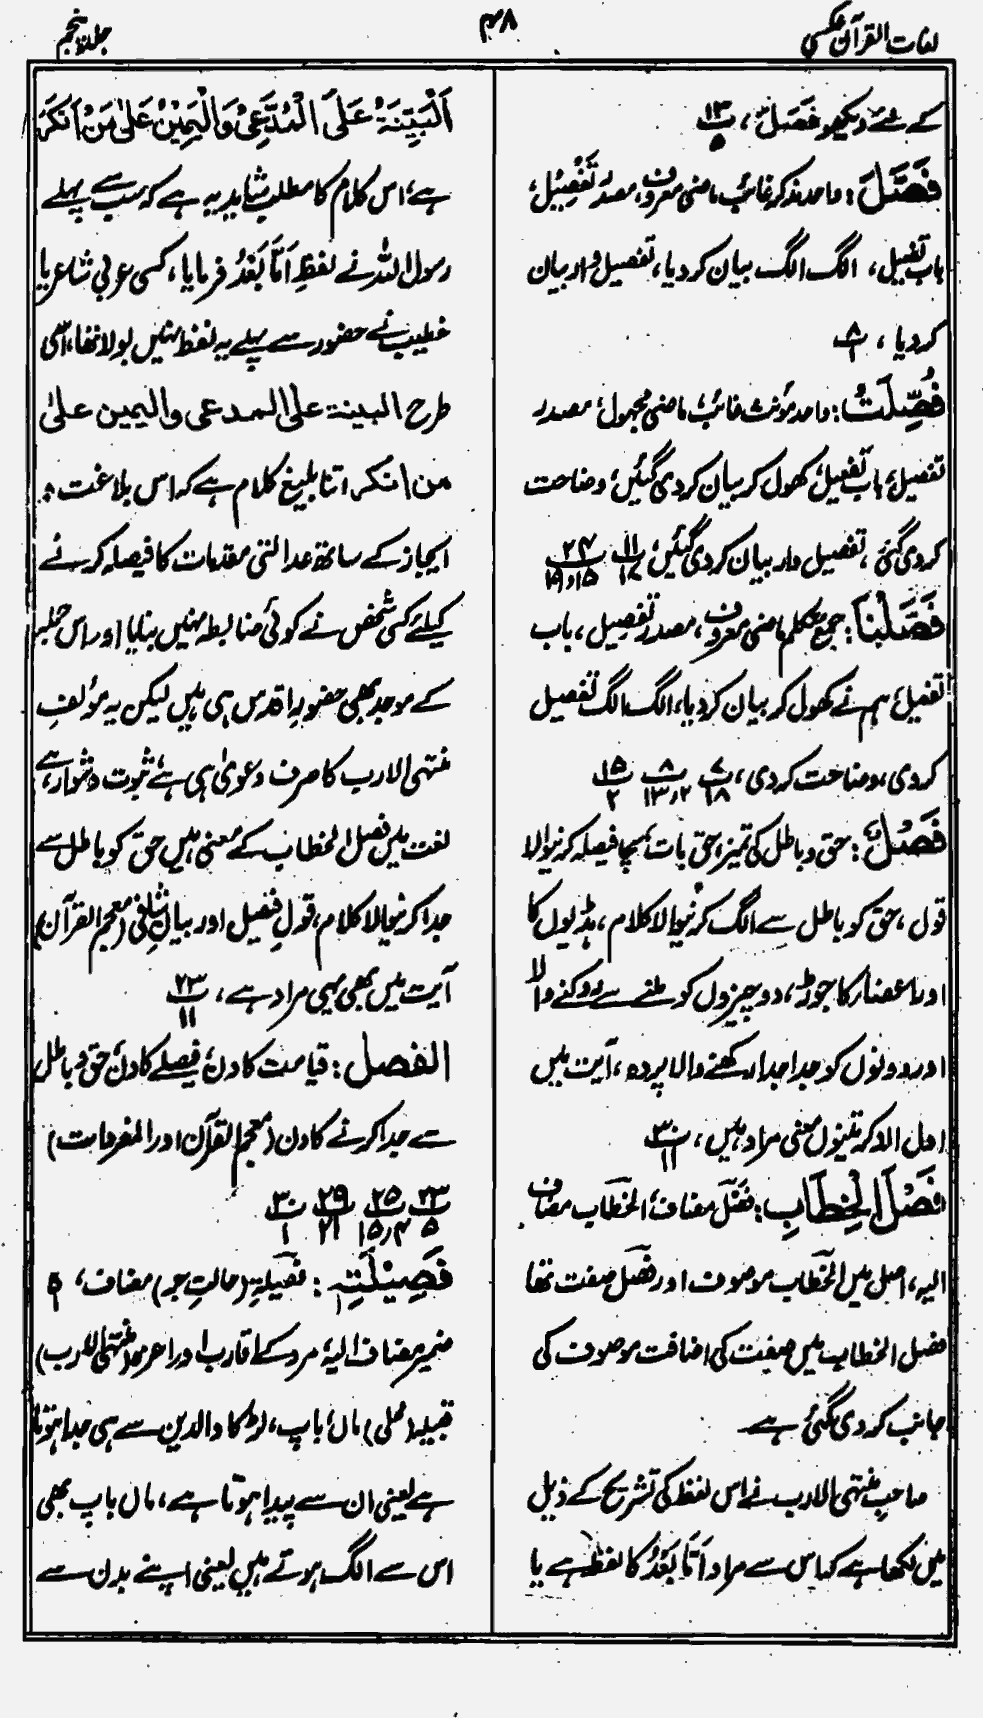 لغات القرآن عکسی
۴۸
جلد پنجم
کے لئے دیکھو فَصَلَ، ۱۳/۵
فَصَّلَ: واحد مذکر غائب ماضی معروف، مصدر تَفْصِیْل،
باب تفعیل، الگ الگ بیان کر دیا، تفصیل وار بیان
کر دیا، ۸/۱
فُصِّلَتْ: واحد مؤنث غائب ماضی مجہول، مصدر
تفصیل، باب تفعیل، کھول کر بیان کر دی گئیں، وضاحت
کر دی گئی، تفصیل وار بیان کر دی گئیں، ۱۱/۱۷ ۲۴/۱۵،۱۹
فَصَّلْنَا: جمع متکلم ماضی معروف، مصدر تفصیل، باب
تفعیل، ہم نے کھول کر بیان کر دیا، الگ الگ تفصیل
کر دی، وضاحت کر دی، ۷/۱۸ ۸/۲،۱۳ ۱۵/۲
فَصْلٌ: حق و باطل کی تمیز، حق بات، سچا فیصلہ کرنیوالا
قول، حق کو باطل سے الگ کرنیوالا کلام، ہڈیوں کا
اور اعضار کا جوڑ، دو چیزوں کو ملنے سے روکنے والا
اور دونوں کو جدا جدا رکھنے والا پردہ، آیت میں
اول الذکر تینوں معنی مراد ہیں، ۳۰/۱۱
فَصْلَ الْخِطَابِ: فَصْلَ مضاف، الخطاب مضاف
الیہ، اصل میں الخطاب موصوف اور فصل صفت تھا
فصل الخطاب میں صفت کی اضافت موصوف کی
جانب کر دی گئی ہے
صاحبِ منتہی الارب نے اس لفظ کی تشریح کے ذیل
میں لکھا ہے کہ اس سے مراد اَمَّا بَعْدُ کا لفظ ہے یا
اَلْبَیِّنَۃُ عَلَی الْمُدَّعِیْ وَالْیَمِیْنُ عَلٰی مَنْ اَنْکَرَ
ہے، اس کلام کا مطلب شاید یہ ہے کہ سب سے پہلے
رسول اللہ نے لفظِ اَمَّا بَعْدُ فرمایا، کسی عربی شاعر یا
خطیب نے حضور سے پہلے یہ لفظ نہیں بولا تھا، اسی
طرح البینۃ علی المدعی والیمین علیٰ
من انکر اتنا بلیغ کلام ہے کہ اس بلاغت و
ایجاز کے ساتھ عدالتی مقدمات کا فیصلہ کرنے
کیلئے کسی شخص نے کوئی ضابطہ نہیں بنایا اور اس جملہ
کے موجد بھی حضورِ اقدس ہی ہیں لیکن یہ مؤلفِ
منتہی الارب کا صرف دعویٰ ہی ہے، ثبوت دشوار ہے،
لغت میں فصل الخطاب کے معنی ہیں حق کو باطل سے
جدا کرنیوالا کلام، قولِ فیصل اور بیانِ شافی (معجم القرآن)
آیت میں بھی یہی مراد ہے، ۲۳/۱۱
الفصل: قیامت کا دن، فیصلے کا دن، حق و باطل
سے جدا کرنے کا دن (معجم القرآن اور المفردات)
۲۳/۵ ۲۵/۴،۱۵ ۲۹/۲۱ ۳۰/۱
فَصِیْلَتِہٖ: فَصِیْلَۃِ (حالتِ جر) مضاف، ہٖ
ضمیر مضاف الیہ، مرد کے اقارب اور اعزہ (منتہی الارب)
قبیلہ (محلی) ماں باپ، لڑکا والدین سے ہی جدا ہوتا
ہے یعنی ان سے پیدا ہوتا ہے، ماں باپ بھی
اس سے الگ ہوتے ہیں یعنی اپنے بدن سے